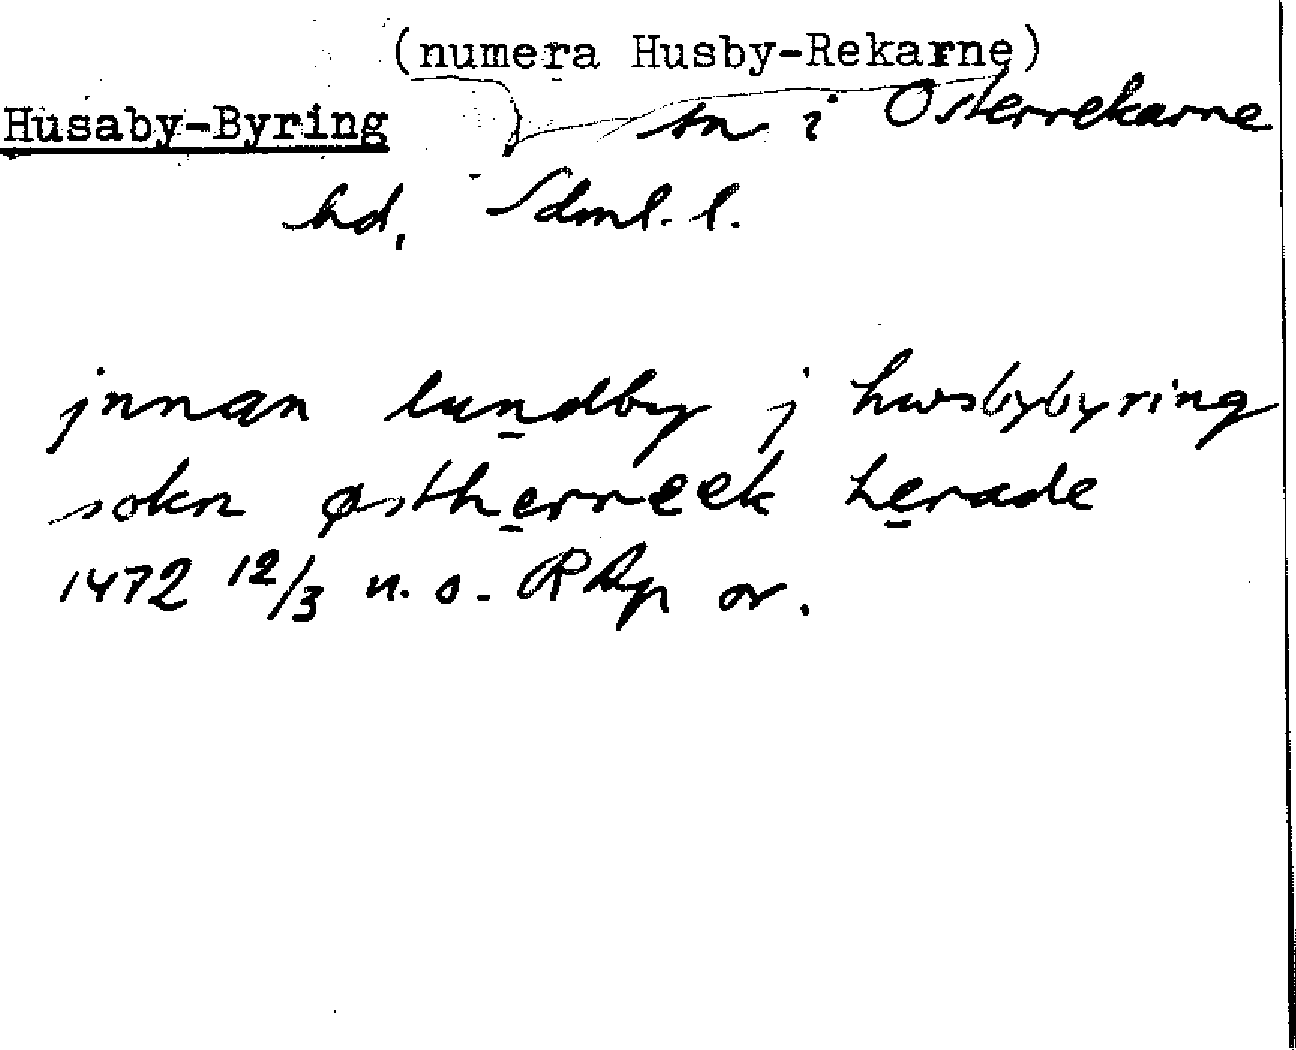 (numera Husby-Rekarne)
Husaby-Byring sn i Österrekarne
hd. Sdml. l.
jnnan lundby j hwsbybyring
sokn østherreek herade
1472 12/3 u. o. RAp or.